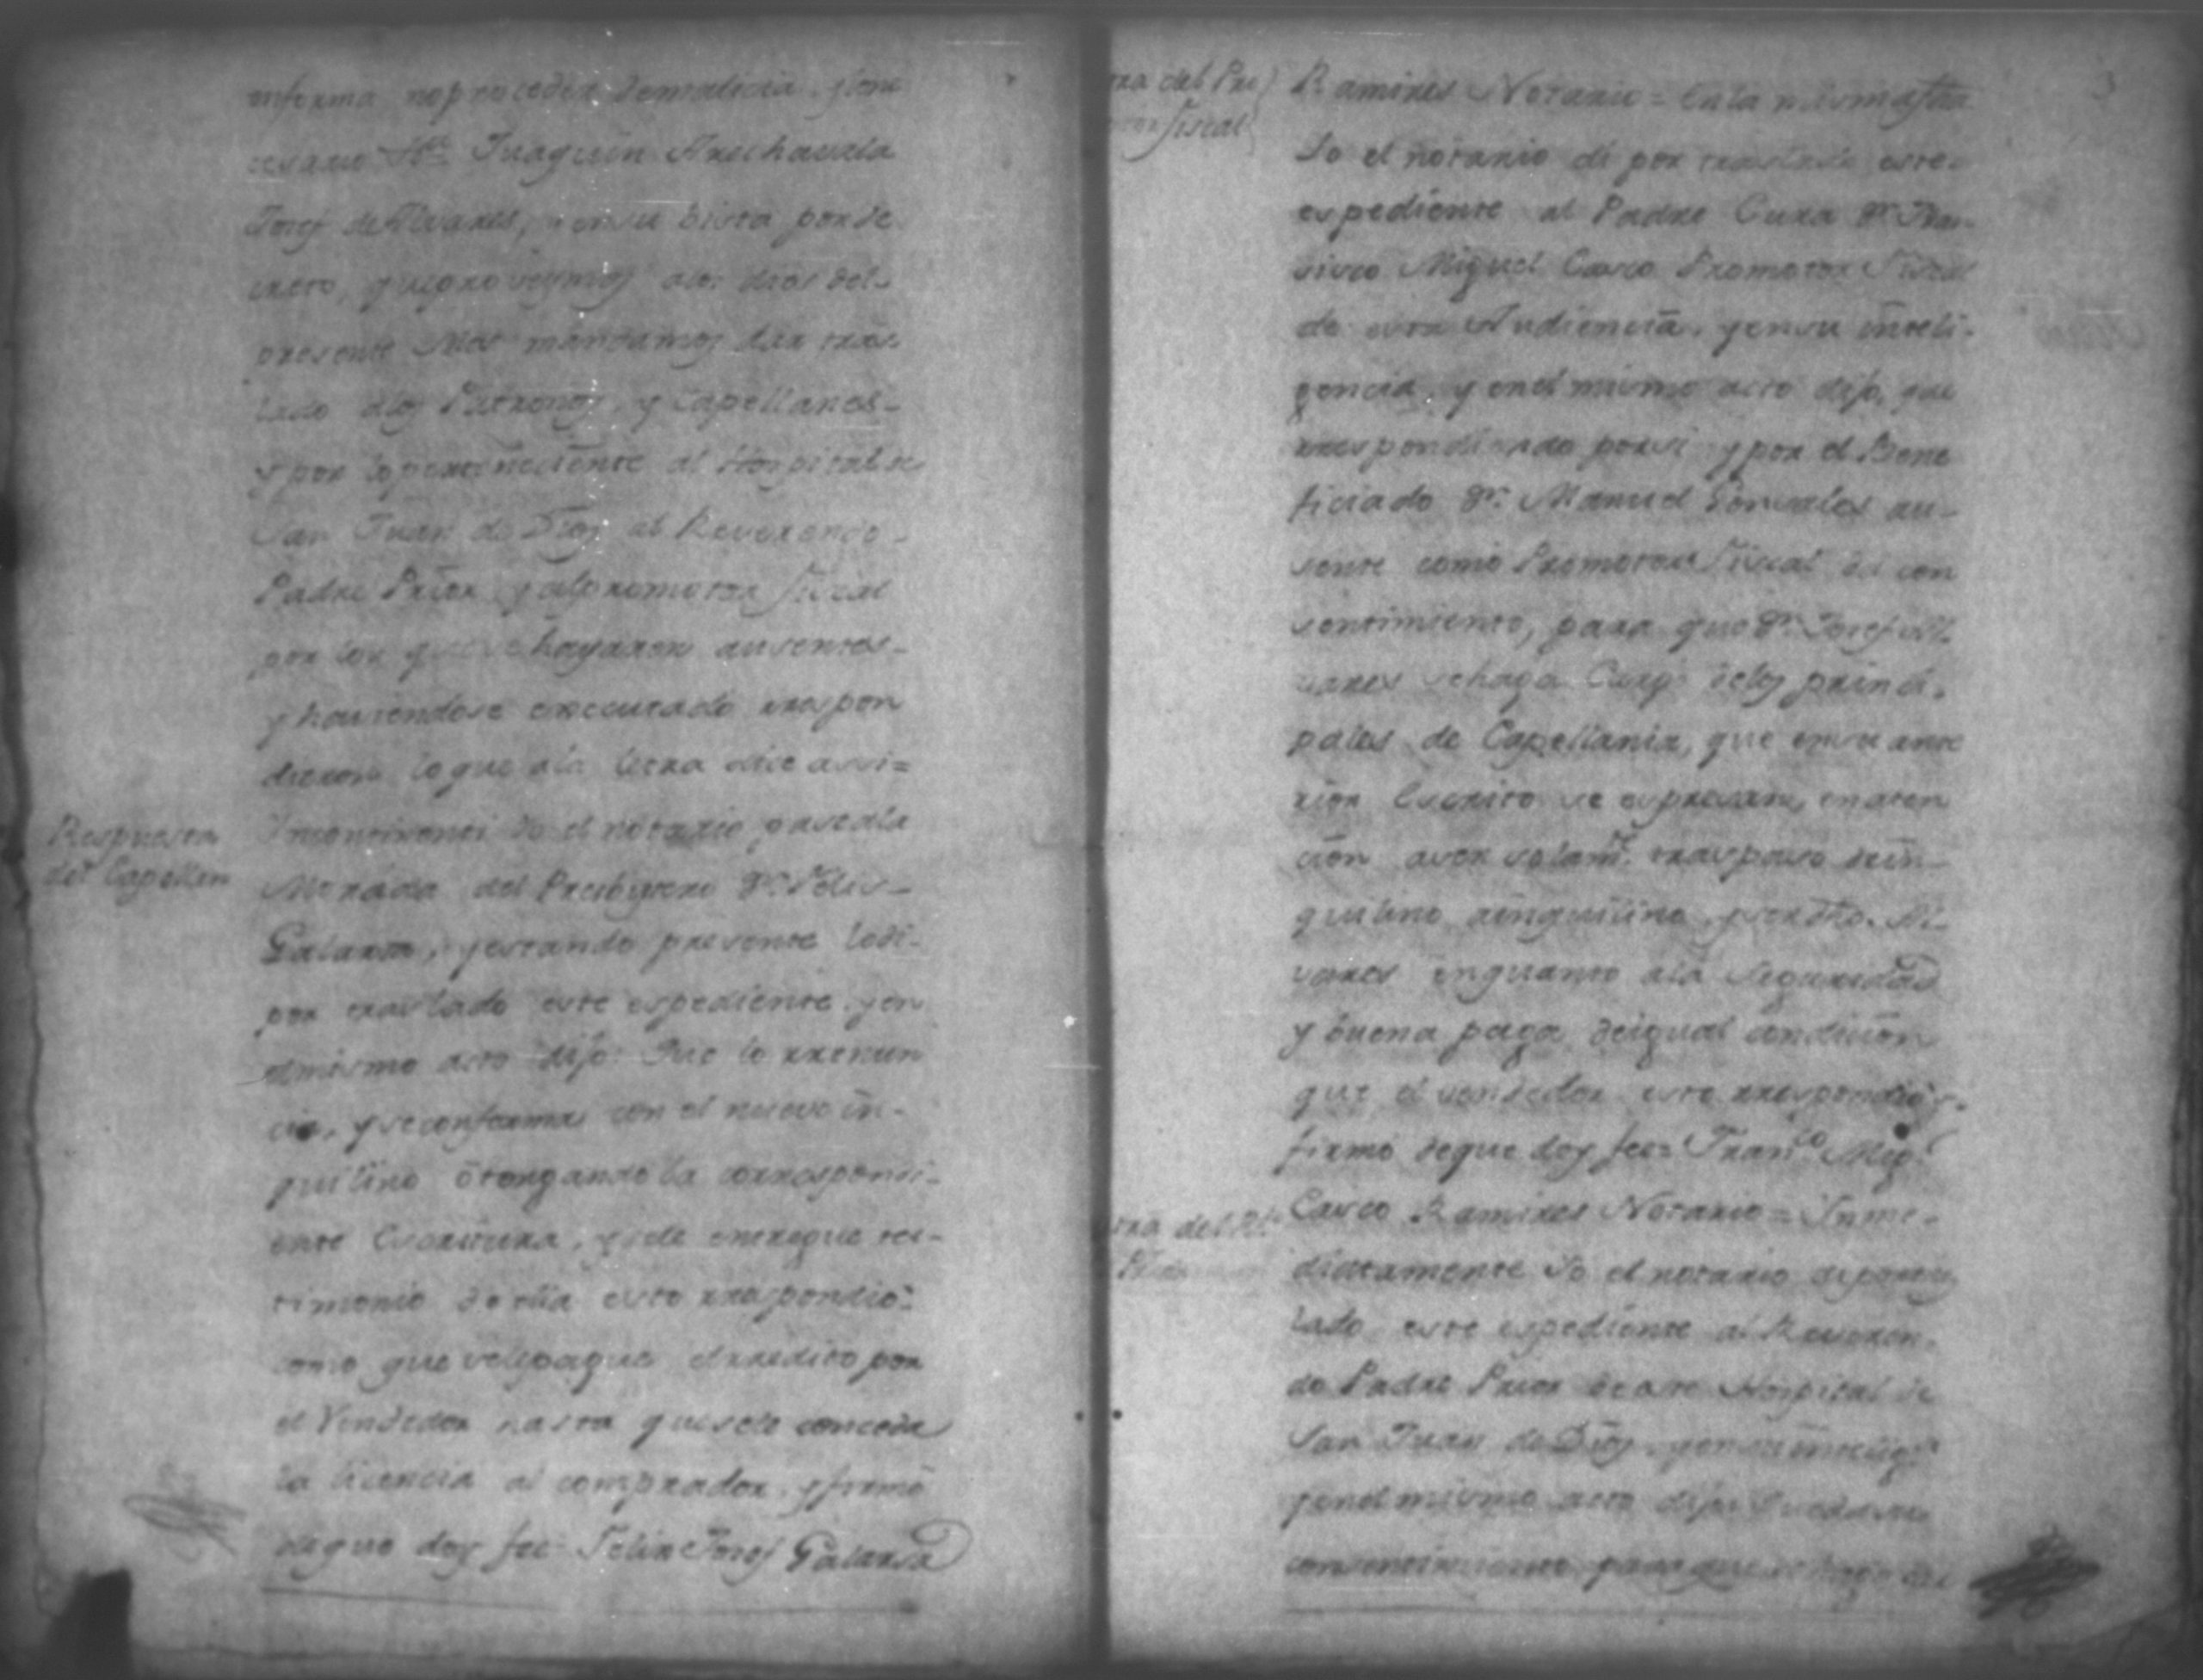 informa no proceder de malicia, y lo ne
cesario &ra Juaquin Arechavala
Josef de Alvares, y en su vista por de
creto, que proveymos a los dias del
presente Mes mandamos dar tras
lado a los Patronos, y Capellanes
y por lo perteneciente al Hospital de
San Juan de Dios al Reverendo
Padre Prior y al promotor fiscal
por los que se hayaren ausentes
y haviendose executado respon
dieron lo que a la letra dice assi=
Respuesta
del Capellan
Yncontinenti Yo el notario pase a la
Morada del Presbytero Dn. Felis
Galarza, y estando presente le di
por traslado este espediente, y en
el mismo acto dijo: Que lo rrenun
cia, y se conforma con el nuevo in-
quilino otorgando la correspondi-
ente Escritura, y se le entregue tes-
timonio de ella esto rrespondio
como que se le pague el rredito por
el Vendedor hasta que se le conceda
la licencia al comprador, y firmó
de que doy fee= Felix Josef Galarza
3
otra del Pro
motor fiscal
Ramires Notario= En la misma fha
Yo el notario di por traslado este
espediente al Padre Cura Dn. Fran-
sisco Miguel Casco Promotor Fiscal
de esta Audiencia, y en su inteli-
gencia, y en el mismo acto dijo, que
rrespondiendo por si y por el Bene
ficiado Dn. Manuel Gonsales au-
sente como Promotor Fiscal da con
sentimiento, para que Dn. Josef Al-
vares se haga Cargo de los princi-
pales de Capellania, que en su ante
rior Escrito se espresan, en aten
cion a ser solamte. traspaso de in-
quilino a inquilino, y ser dho. Al-
vares en quanto a la seguridad
y buena paga de igual condicion
que el vendedor esto rrespondio y
firmó de que doy fee= Franco. Migl.
Casco Ramires Notario= Ynme-
otra del Re.
diatamente Yo el notario di por tras
lado este espediente al Reveren-
do Padre Prior de este Hospital de
San Juan de Dios, y en su inteliga.
y en el mismo acto dijo: Que da su
consentimiento para que se haga